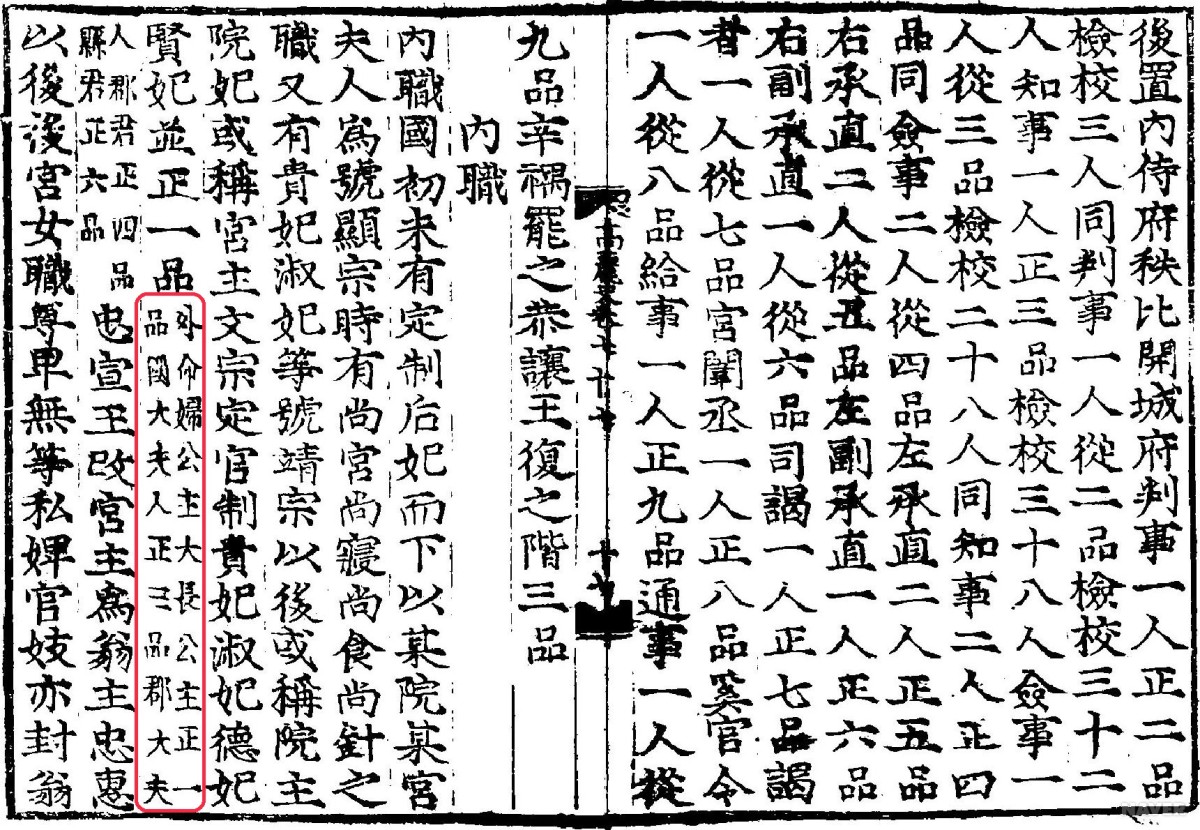 後置內侍府秩比開城府判事一人正二品
檢校三人同判事一人從二品檢校三十二
人知事一人正三品檢校三十八人僉事一
人從三品檢校二十八人同知事二人正四
品同僉事二人從四品左承直二人正五品
右承直二人從五品左副承直一人正六品
右副承直一人從六品司謁一人正七品謁
者一人從七品宮闈丞一人正八品奚官令
一人從八品給事一人正九品通事一人從
高麗史卷七十七
九品辛禑罷之恭讓王復之階三品
內職
內職國初未有定制后妃而下以某院某宮
夫人爲號顯宗時有尙宮尙寢尙食尙針之
職又有貴妃淑妃等號靖宗以後或稱院主
院妃或稱宮主文宗定官制貴妃淑妃德妃
賢妃並正一品
外命婦公主大長公主正一
品國大夫人正三品郡大夫
人郡君正四品
縣君正六品
忠宣王改宮主爲翁主忠惠
以後後宮女職尊卑無等私婢官妓亦封翁
NAVER